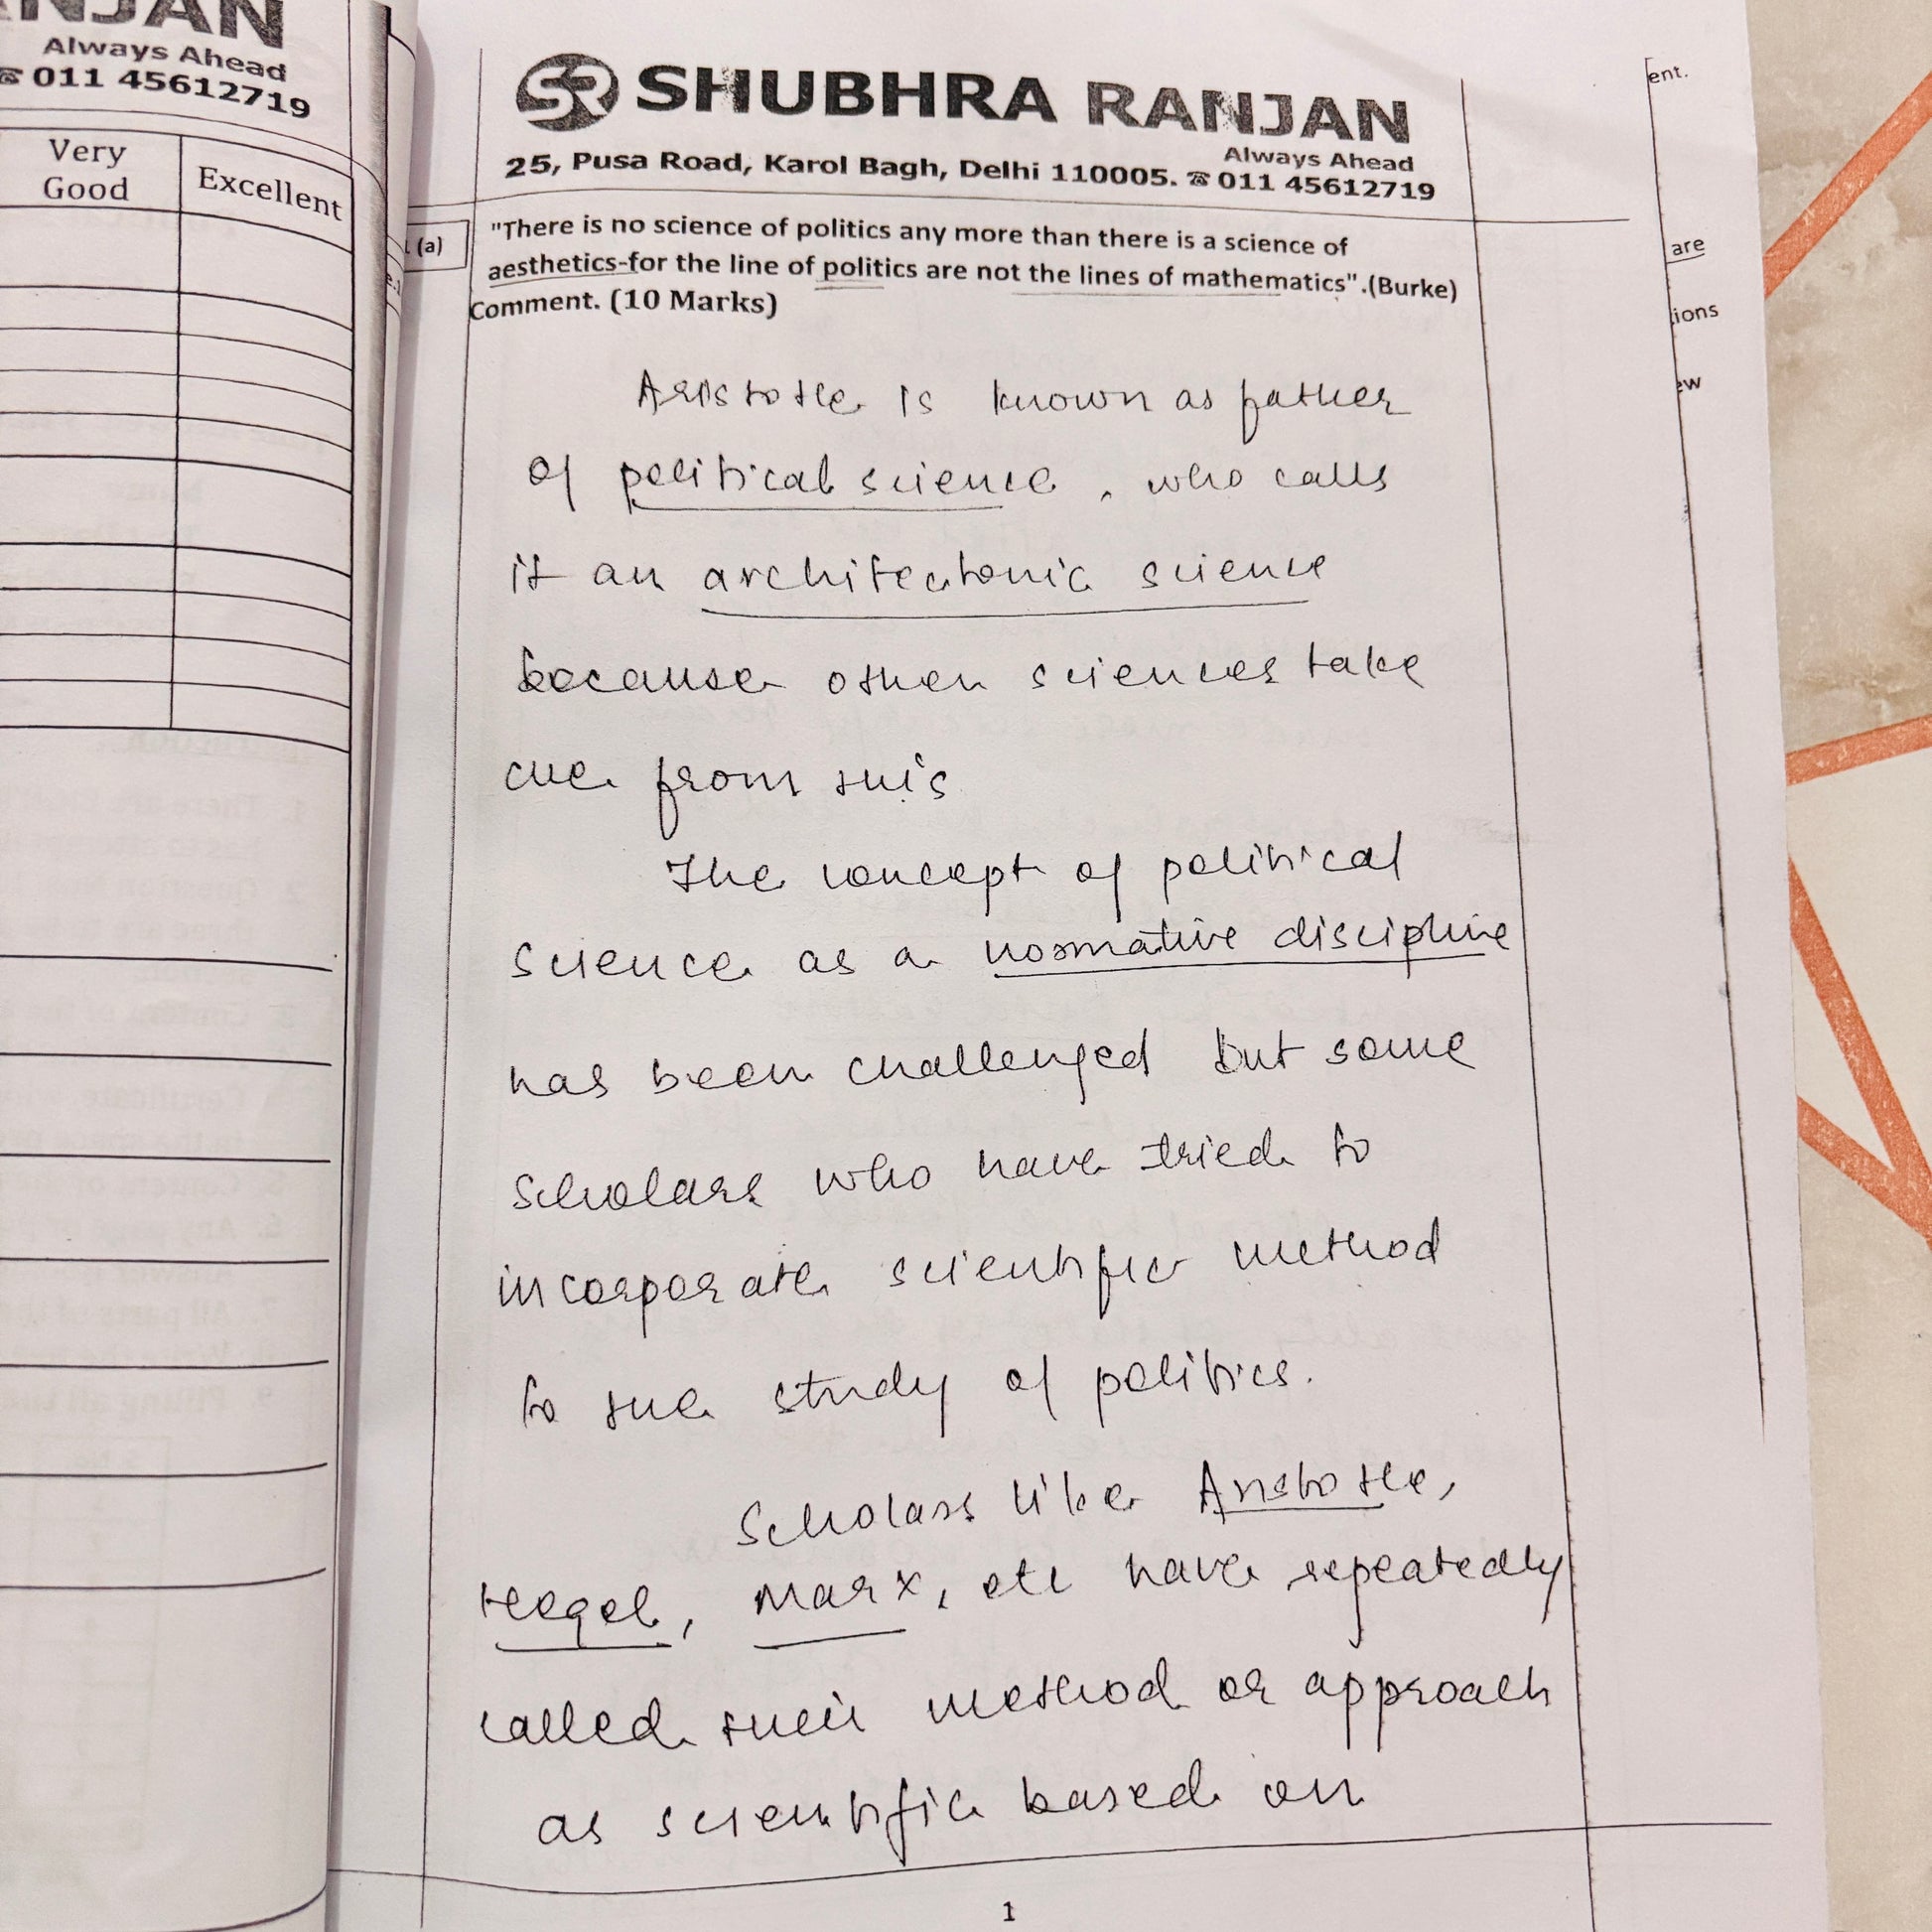 RANJAN
Always Ahead
☎ 011 45612719
Very Good
Excellent
SR SHUBHRA RANJAN
Always Ahead
25, Pusa Road, Karol Bagh, Delhi 110005. ☎ 011 45612719
(a)
"There is no science of politics any more than there is a science of
aesthetics-for the line of politics are not the lines of mathematics".(Burke)
Comment. (10 Marks)
Aristotle is known as father
of political science, who calls
it an architectonic science
because other sciences take
cue from this
The concept of political
science as a normative discipline
has been challenged but some
scholars who have tried to
incorporate scientific method
to the study of politics.
Scholars like Aristotle,
Hegel, Marx, etc have repeatedly
called their method or approach
as scientific based on
1
ent.
are
tions
ew